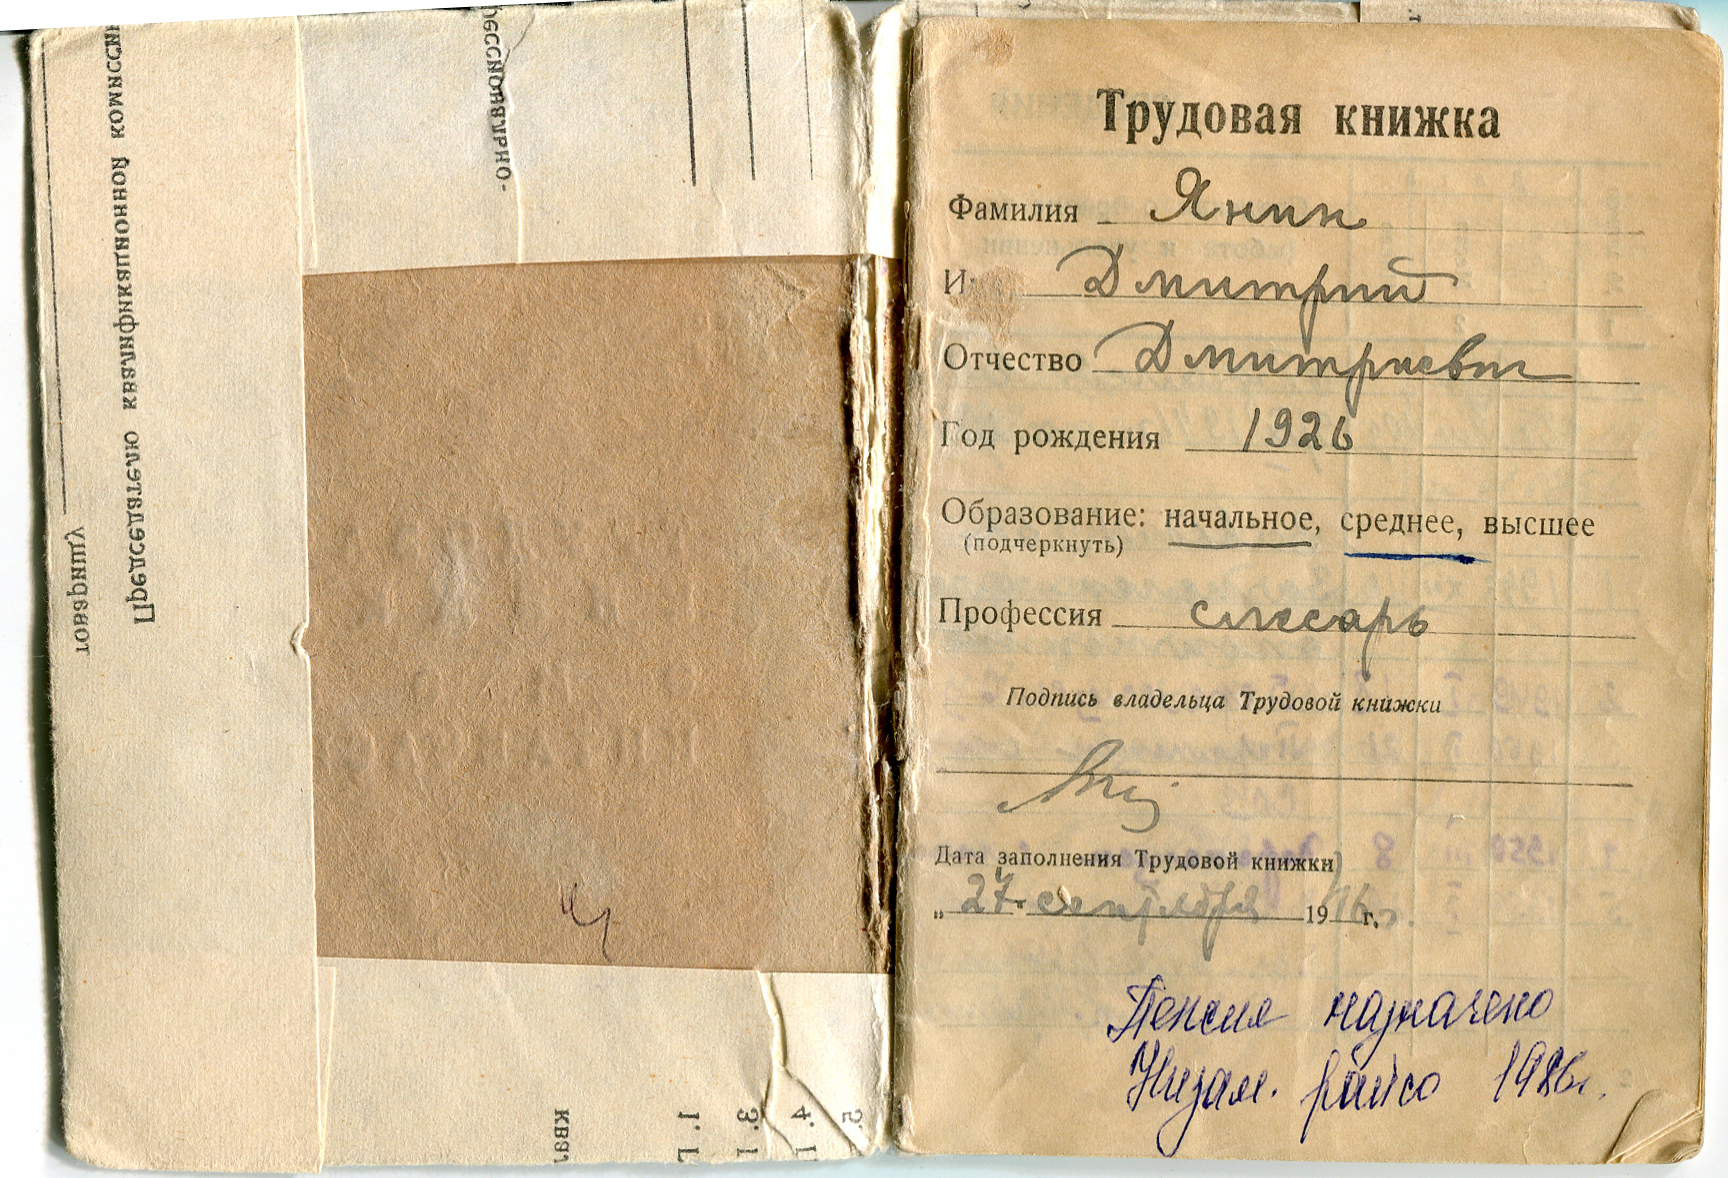 Председателю квалификационной комиссии
товарищу
ессионально-
квал
1. Ц
3. 1
4. П
5.
Трудовая книжка
Фамилия Янин
И Дмитрий
Отчество Дмитриевич
Год рождения 1926
Образование: начальное, среднее, высшее
(подчеркнуть)
Профессия слесарь
Подпись владельца Трудовой книжки
Дата заполнения Трудовой книжки
„ 27 сентября 1946 г.
Пенсия назначено
Низам. райсо 1986г.